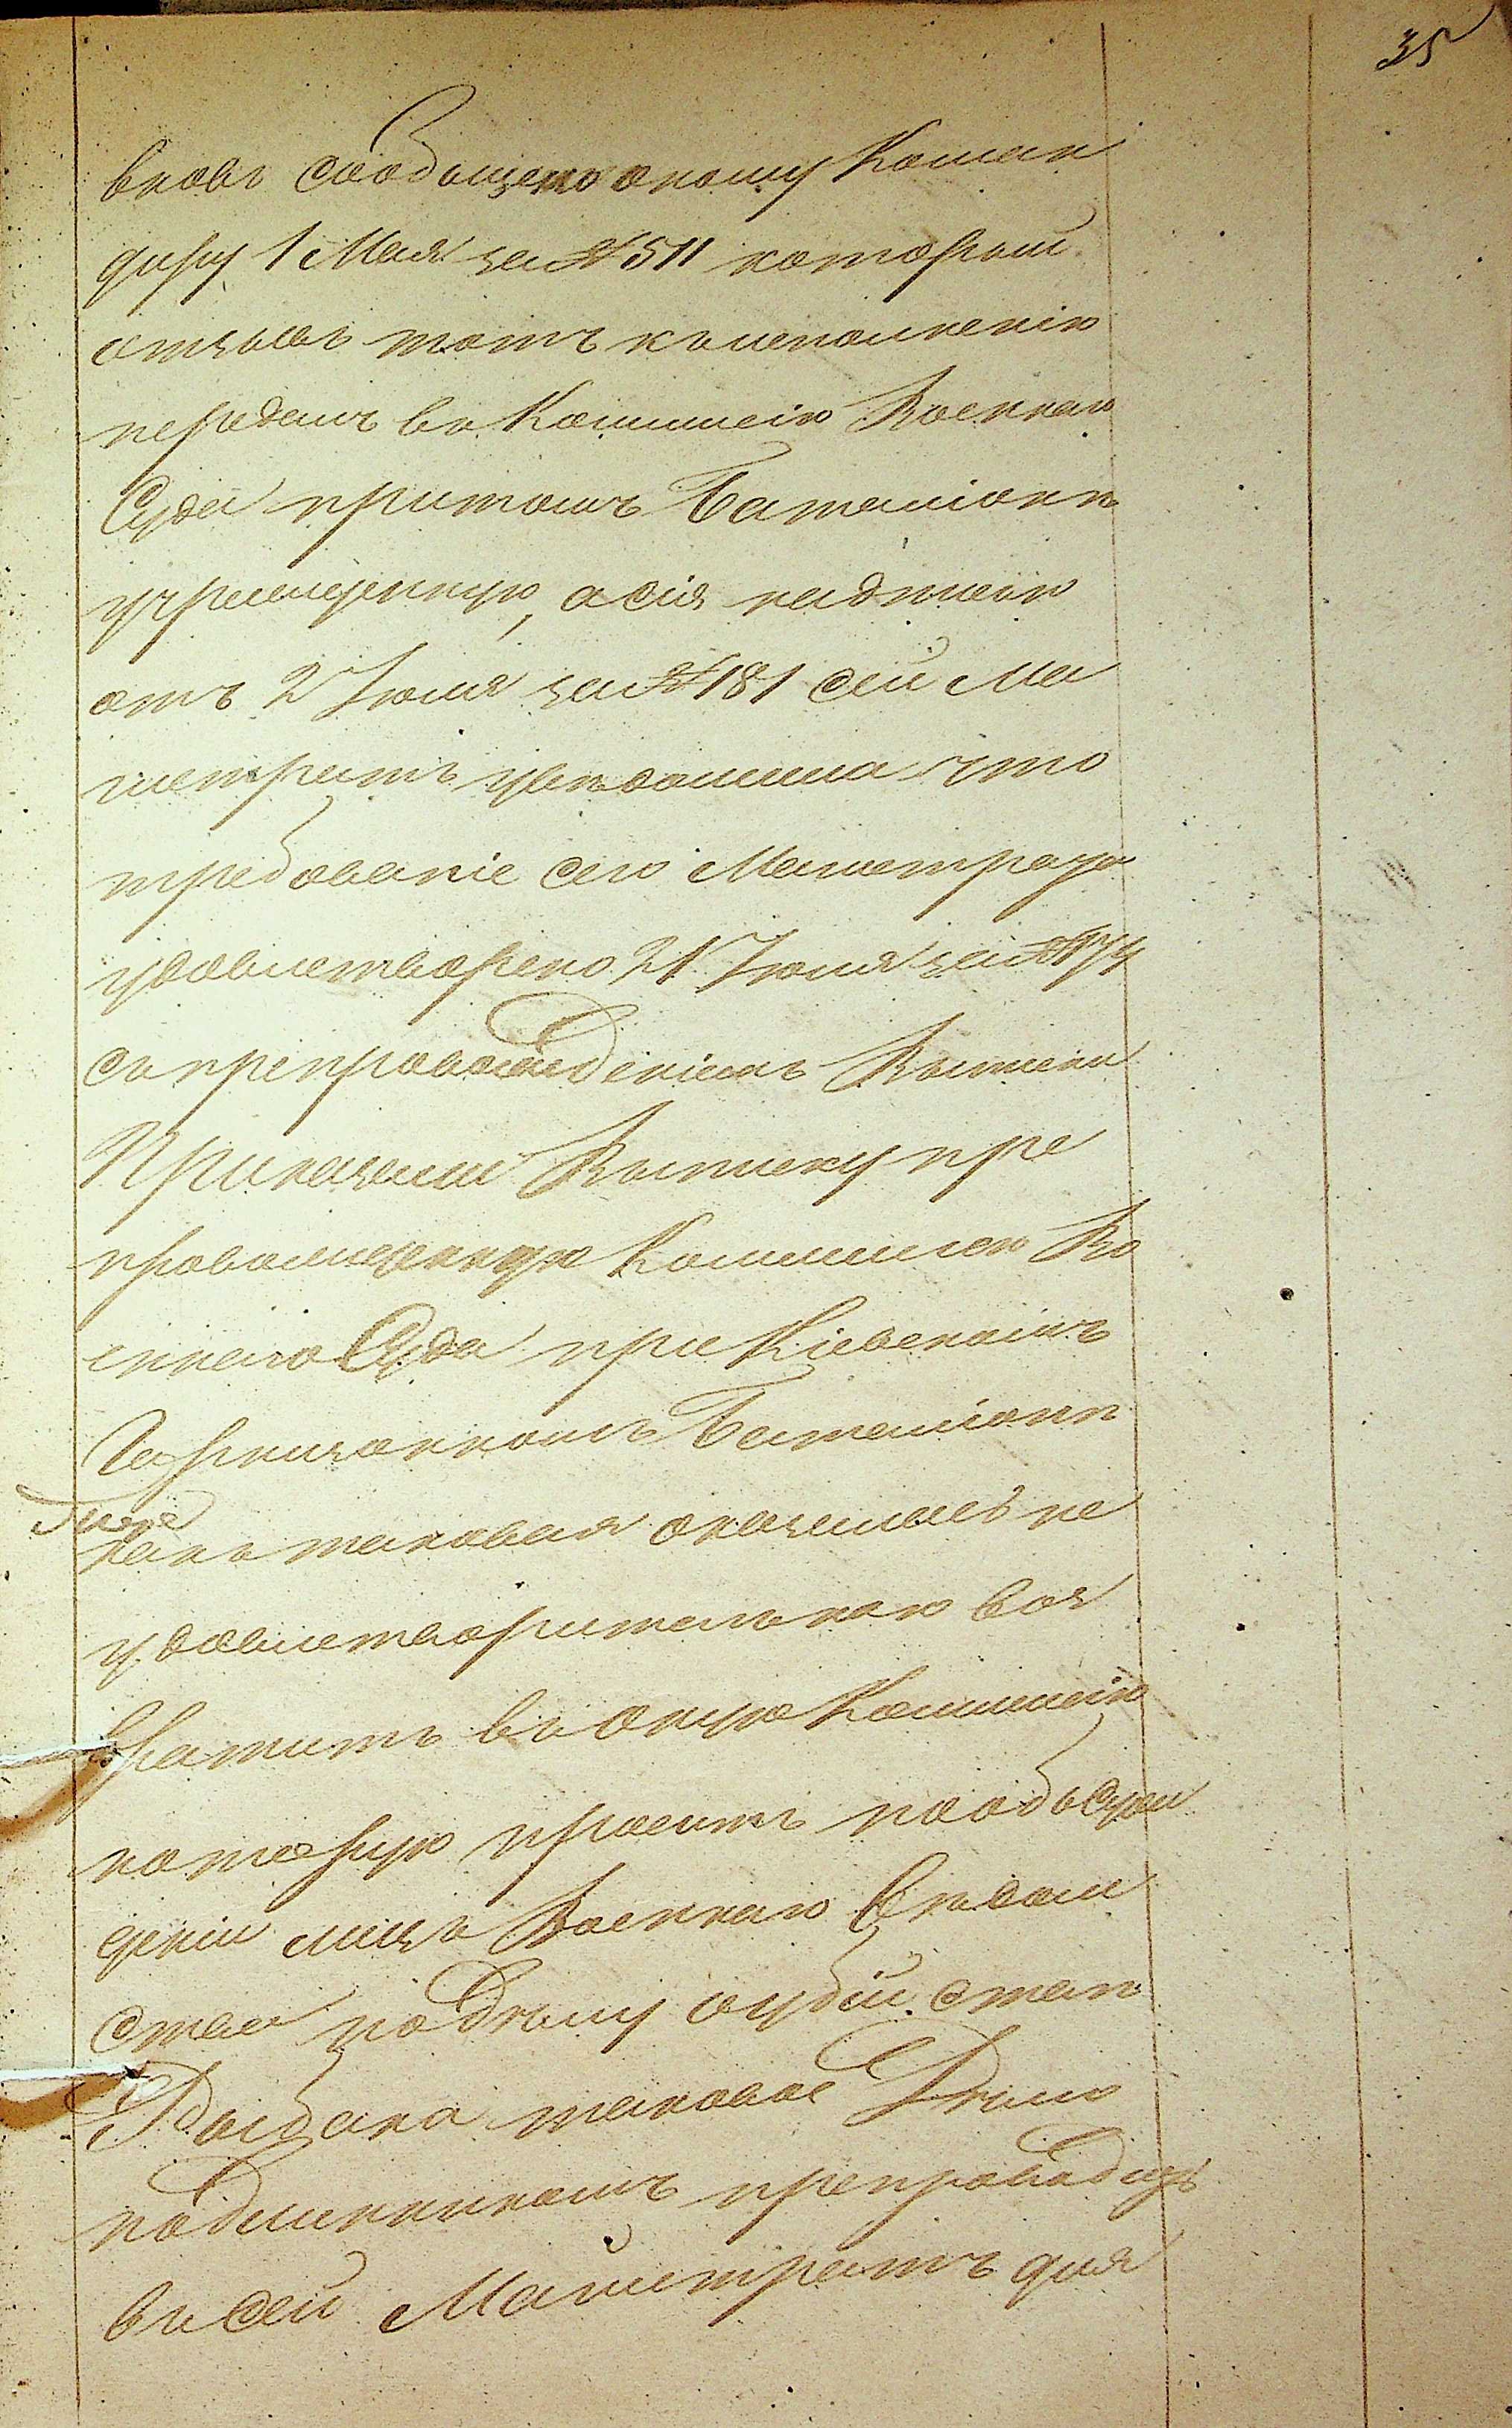 35
вновь сообщено оному Коман
диру 1 Мая за № 511 который
отзывъ тотъ къ исполненію
передалъ въ Коммисію Военнаго
Суда притомъ Баталіонѣ
учрежденную, а сія надписью
отъ 2 Іюля за № 181 сей Ма
гистратъ увѣдомила что
требованіе сего Магистрата
удовлетворено 21 Іюня за № 174
съ препровожденіемъ Выписки
Приказали Выписку пре
провожденную Коммисіею Во
еннаго Суда при Кіевскомъ
Гарнизонномъ Баталіонѣ
какъ таковая оказалась не
удовлетворительною воз
вратить въ оную Коммисію
которую просить пообсуж
деніи лицъ Военнаго Вѣдом
ства подѣлу о
таковое Дѣло
подлинникомъ препроводить
въ сей Магистратъ для